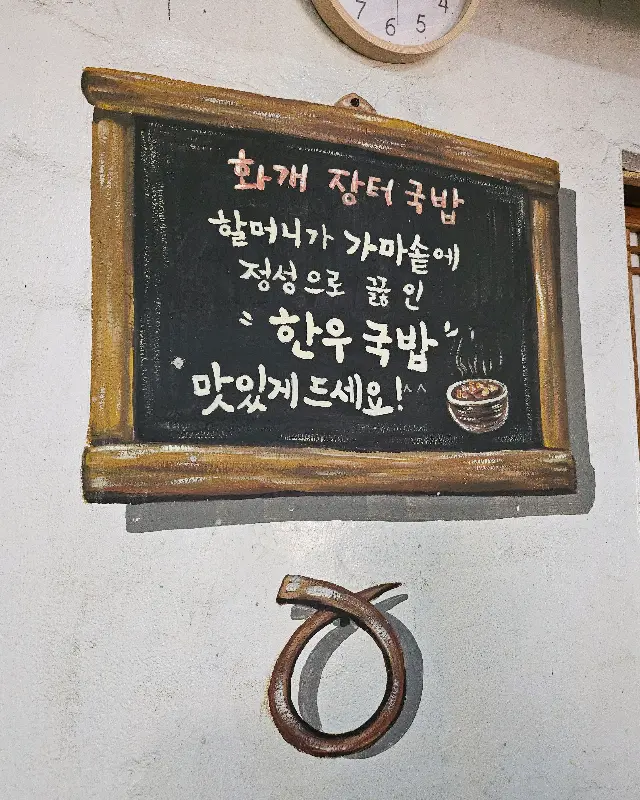 7 6 5 4
화개 장터 국밥
할머니가 가마솥에
정성으로 끓인
"한우 국밥"
맛있게 드세요!^^